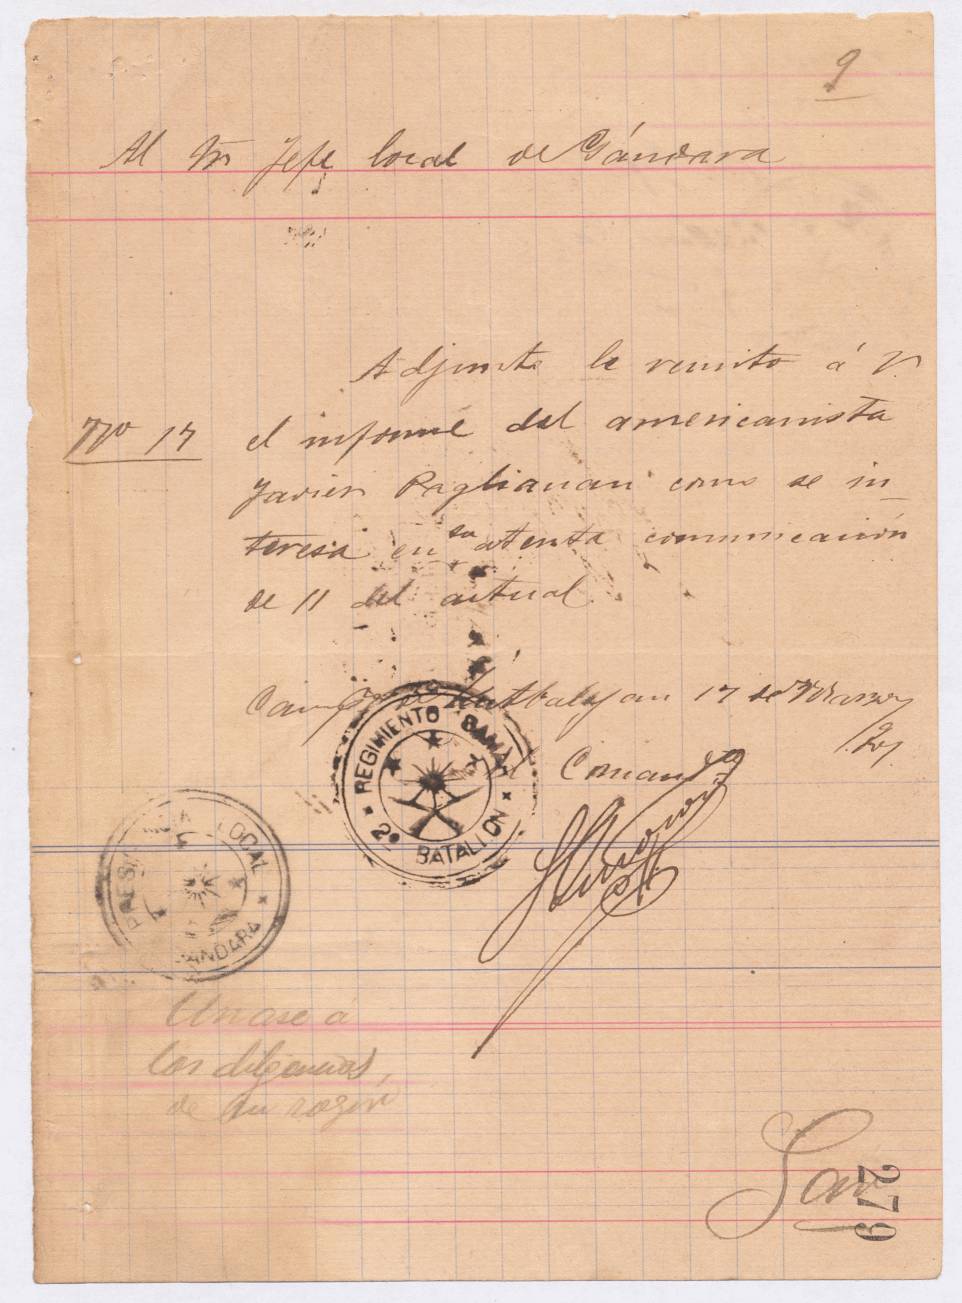 9
Al Sr Jefe local de Gándara
Adjunto le remito á V.
Nº 17 el informe del americanista
Javier Paglianan como se in-
teresa en su atenta comunicación
de 11 del actual.
Camp de Matbalogan 17 de Marzo
El Comandte
REGIMIENTO SAMAR
2º BATALLON
PRESIDENCIA LOCAL
GANDARA
Unase á
las diligencias
de su razón
279